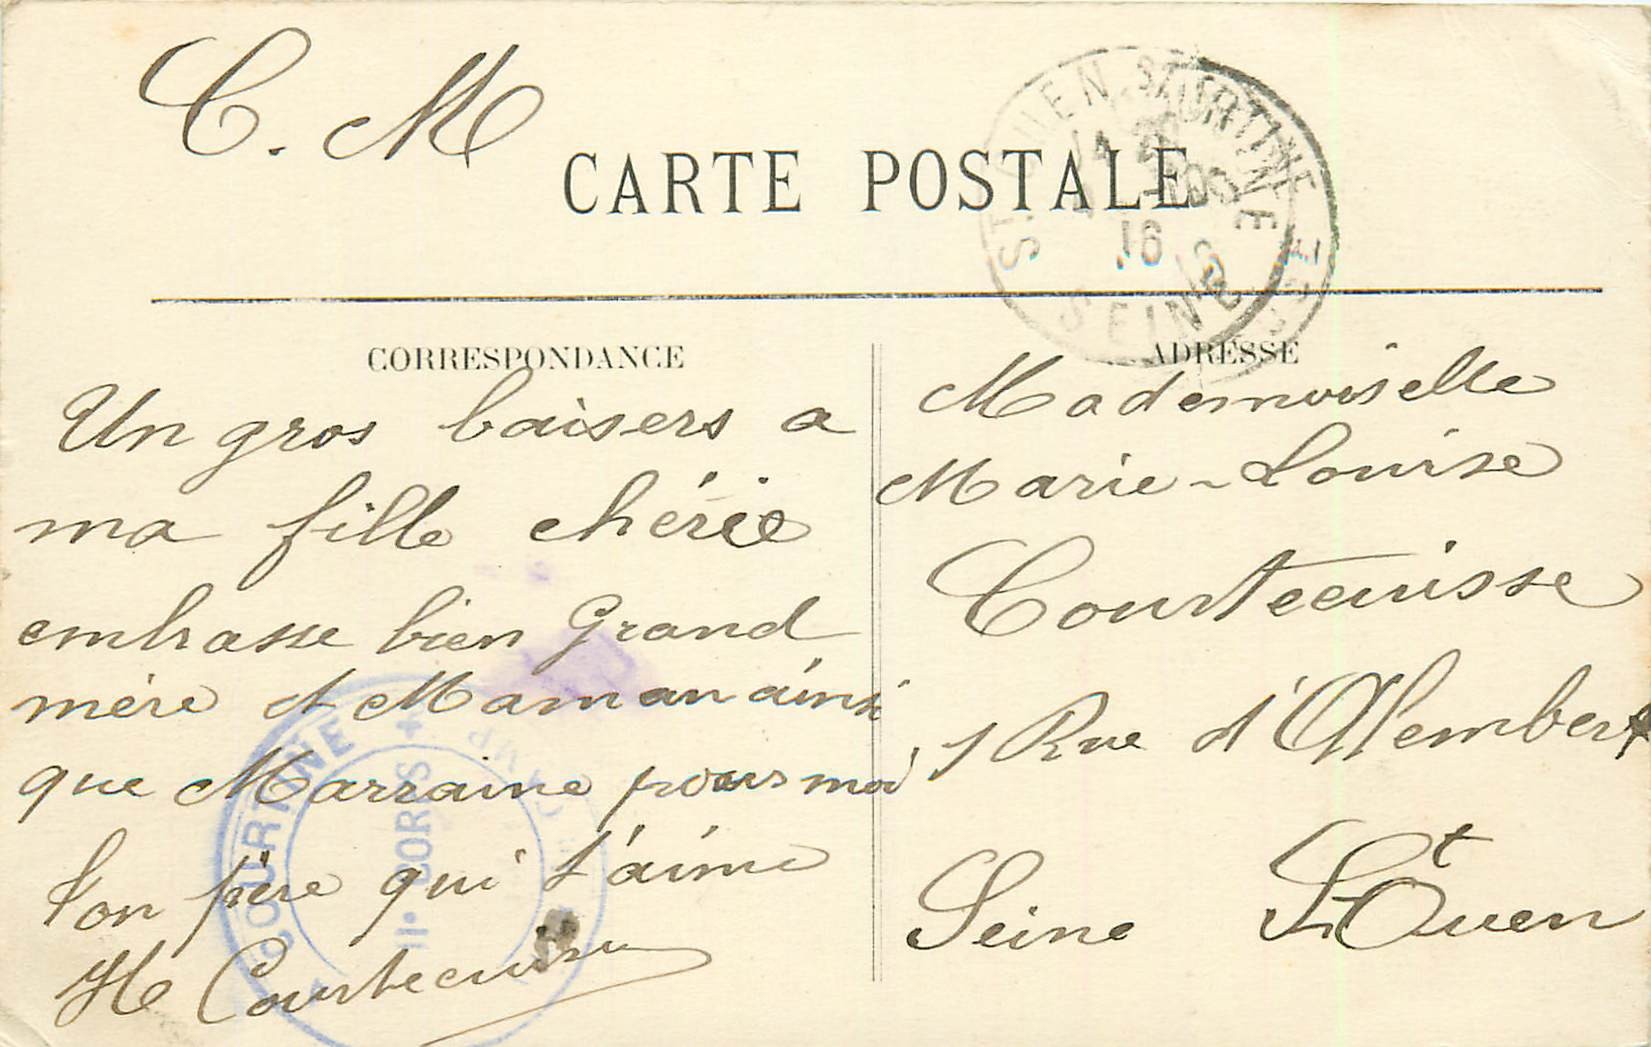 C. M
CARTE POSTALE
ST OUEN
SEINE
16
CORRESPONDANCE
ADRESSE
Un gros baisers a
ma fille chérie
embrasse bien Grand
mère et Maman ainsi
que Marraine pour moi
Ton père qui t'aime
H Courtecuisse
Mademoiselle
Marie-Louise
Courtecuisse
1 Rue d'Alembert
Seine St Ouen
COURTINE
CAMP
CORPS